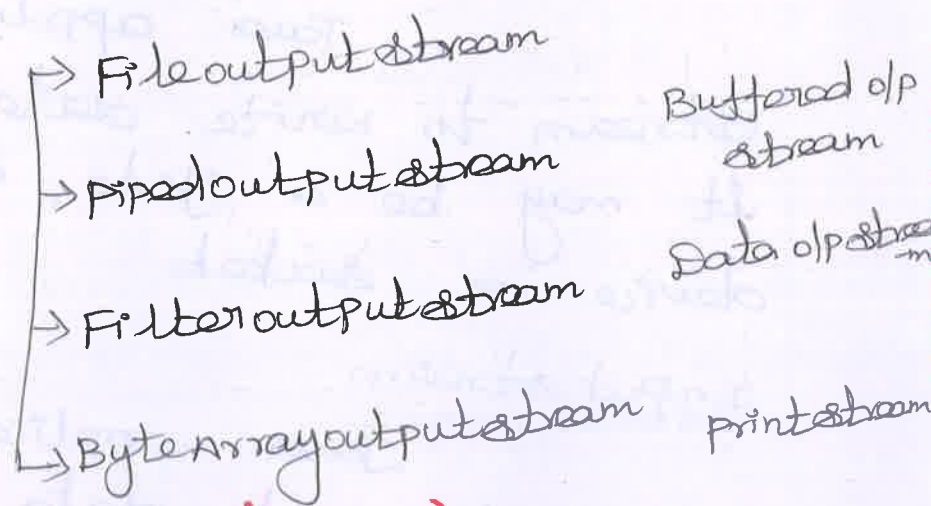 → Fileoutputstream
→ pipedoutputstream
→ Filteroutputstream
→ ByteArrayoutputstream
Buffered o/p
stream
Data o/p strea
-m
printstream